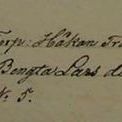 Torp: Håkan Tr
Bengta Lars d
N: 5.